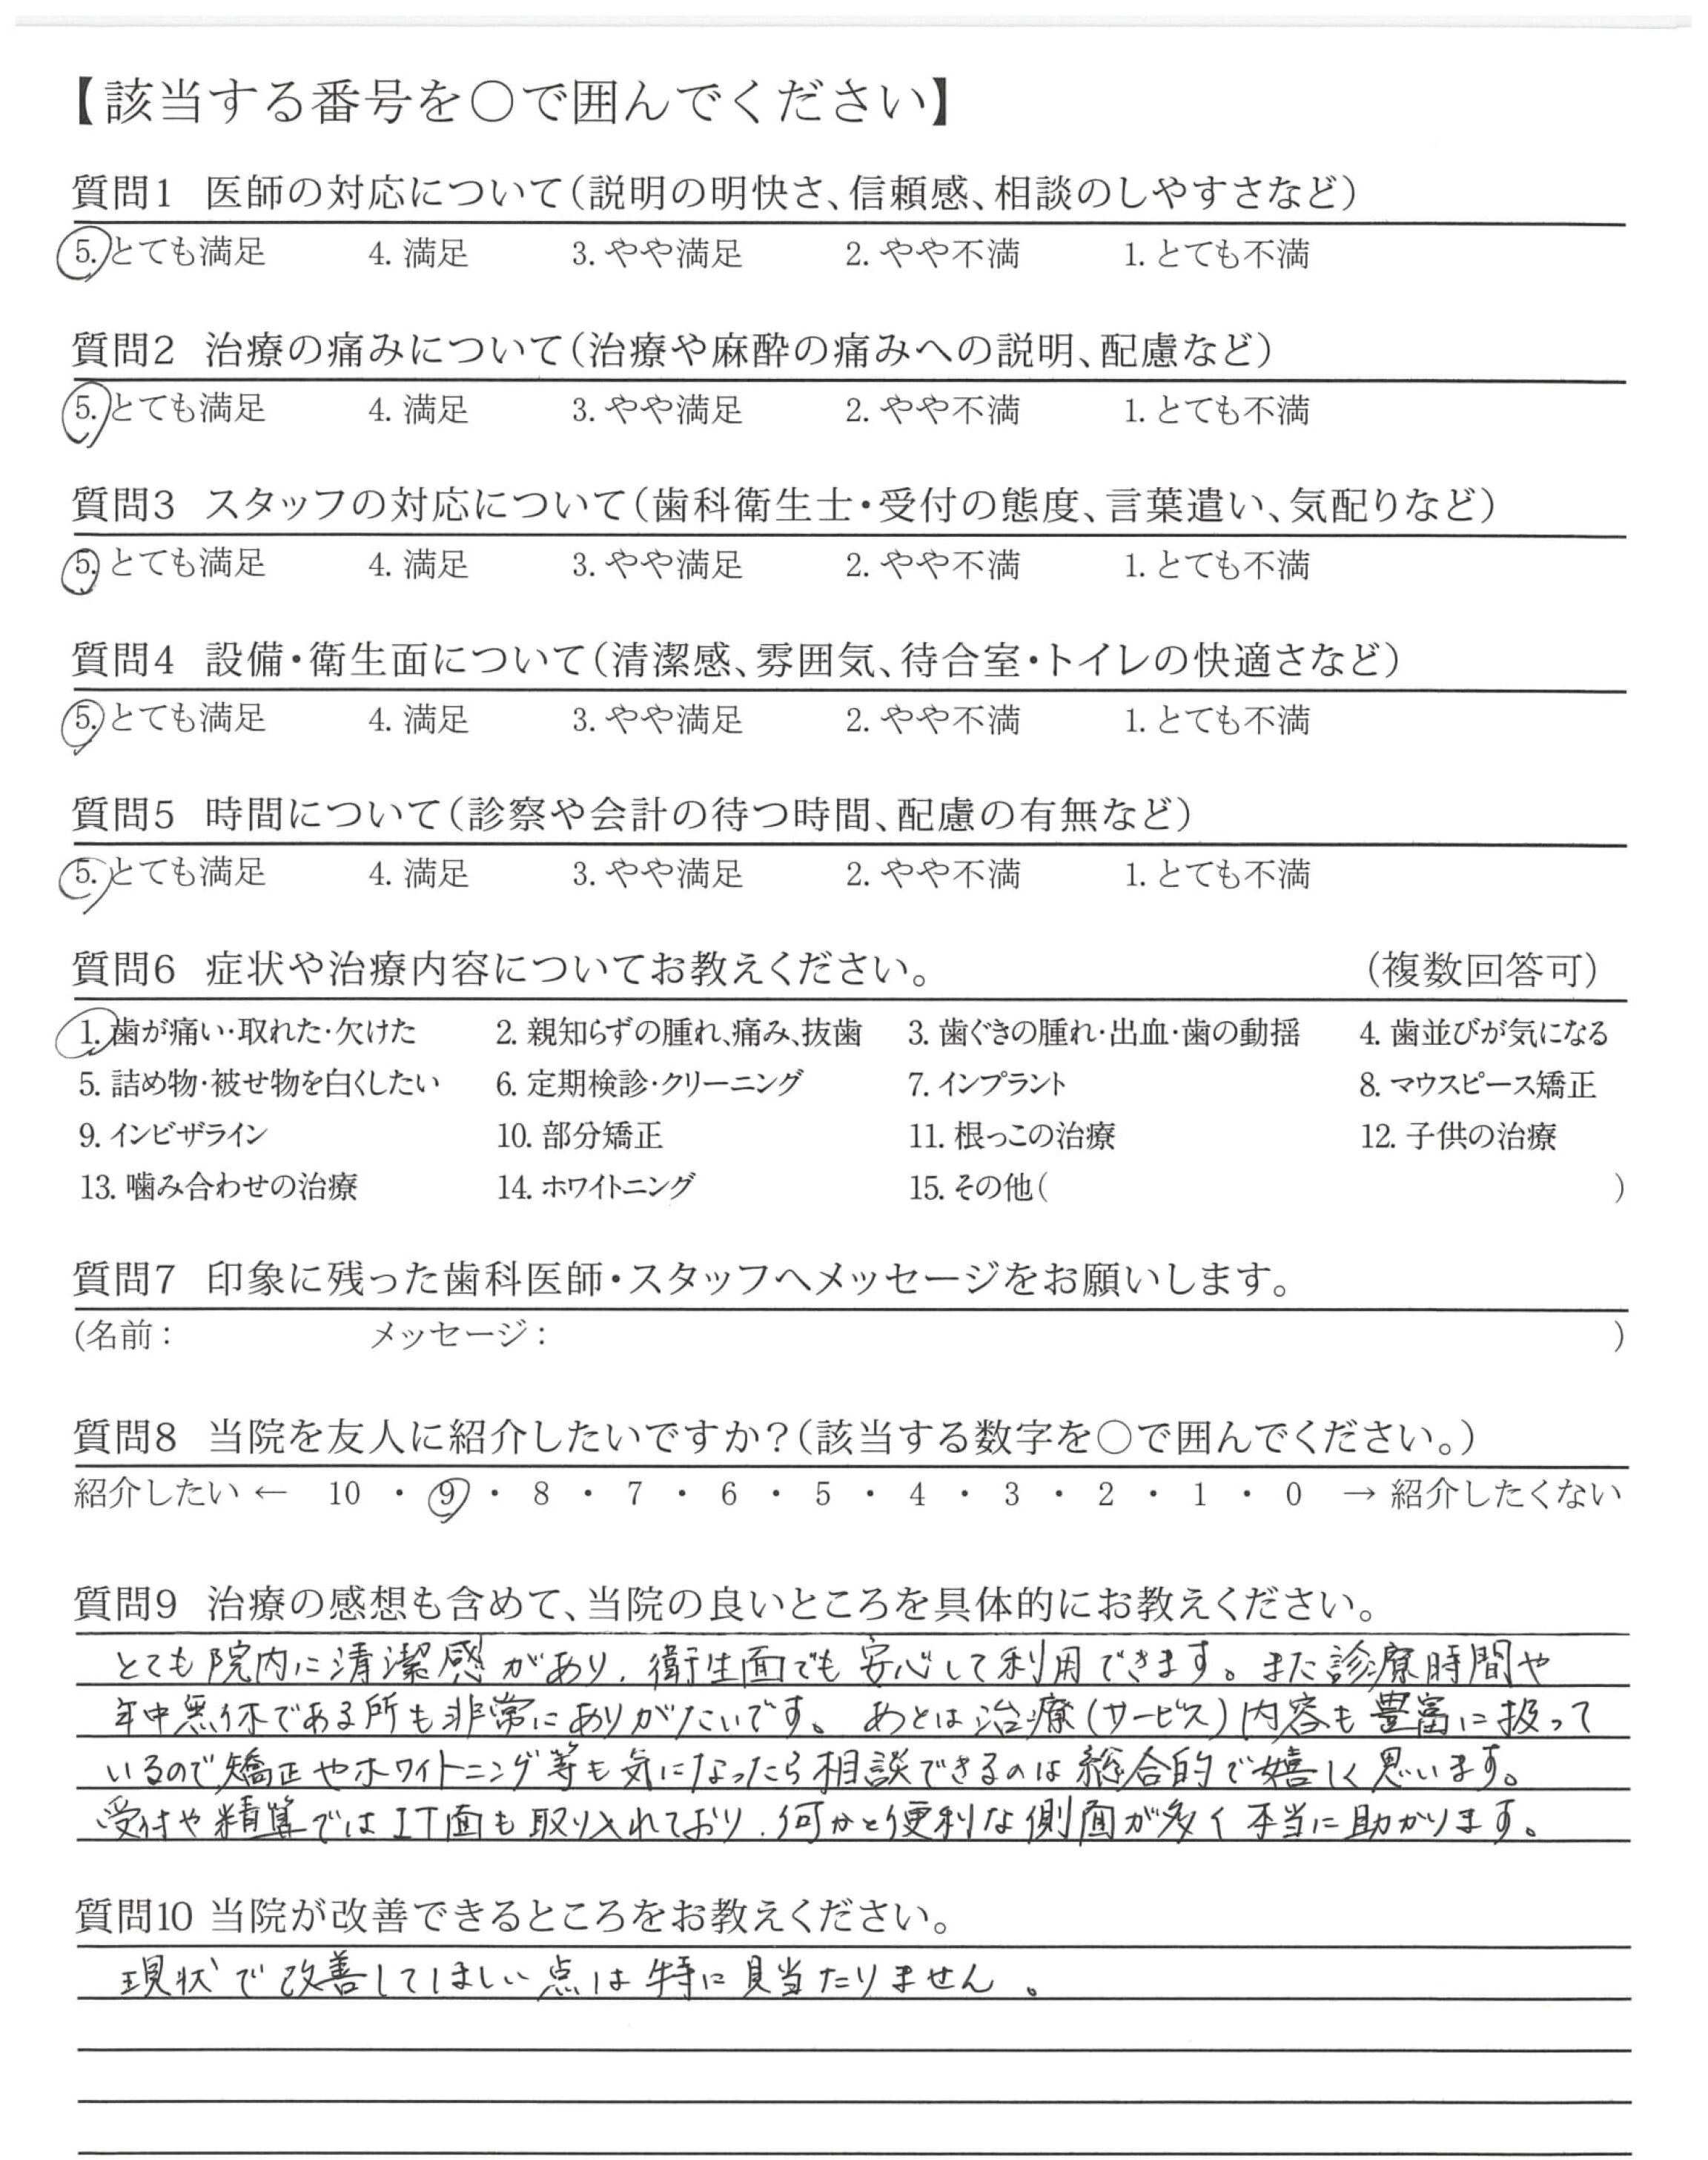 【該当する番号を〇で囲んでください】
質問1 医師の対応について（説明の明快さ、信頼感、相談のしやすさなど）
5. とても満足 4. 満足 3. やや満足 2. やや不満 1. とても不満
質問2 治療の痛みについて（治療や麻酔の痛みへの説明、配慮など）
5. とても満足 4. 満足 3. やや満足 2. やや不満 1. とても不満
質問3 スタッフの対応について（歯科衛生士・受付の態度、言葉遣い、気配りなど）
5. とても満足 4. 満足 3. やや満足 2. やや不満 1. とても不満
質問4 設備・衛生面について（清潔感、雰囲気、待合室・トイレの快適さなど）
5. とても満足 4. 満足 3. やや満足 2. やや不満 1. とても不満
質問5 時間について（診察や会計の待つ時間、配慮の有無など）
5. とても満足 4. 満足 3. やや満足 2. やや不満 1. とても不満
質問6 症状や治療内容についてお教えください。 （複数回答可）
1. 歯が痛い・取れた・欠けた 2. 親知らずの腫れ、痛み、抜歯 3. 歯ぐきの腫れ・出血・歯の動揺 4. 歯並びが気になる
5. 詰め物・被せ物を白くしたい 6. 定期検診・クリーニング 7. インプラント 8. マウスピース矯正
9. インビザライン 10. 部分矯正 11. 根っこの治療 12. 子供の治療
13. 噛み合わせの治療 14. ホワイトニング 15. その他（ ）
質問7 印象に残った歯科医師・スタッフへメッセージをお願いします。
(名前： メッセージ： )
質問8 当院を友人に紹介したいですか？（該当する数字を〇で囲んでください。）
紹介したい ← 10 ・ 9 ・ 8 ・ 7 ・ 6 ・ 5 ・ 4 ・ 3 ・ 2 ・ 1 ・ 0 → 紹介したくない
質問9 治療の感想も含めて、当院の良いところを具体的にお教えください。
とても院内に清潔感があり、衛生面でも安心して利用できます。また診療時間や
年中無休である所も非常にありがたいです。あとは治療（サービス）内容も豊富に扱って
いるので矯正やホワイトニング等も気になったら相談できるのは総合的で嬉しく思います。
受付や精算ではIT面も取り入れており、何かと便利な側面が多く本当に助かります。
質問10 当院が改善できるところをお教えください。
現状で改善してほしい点は特に見当たりません。